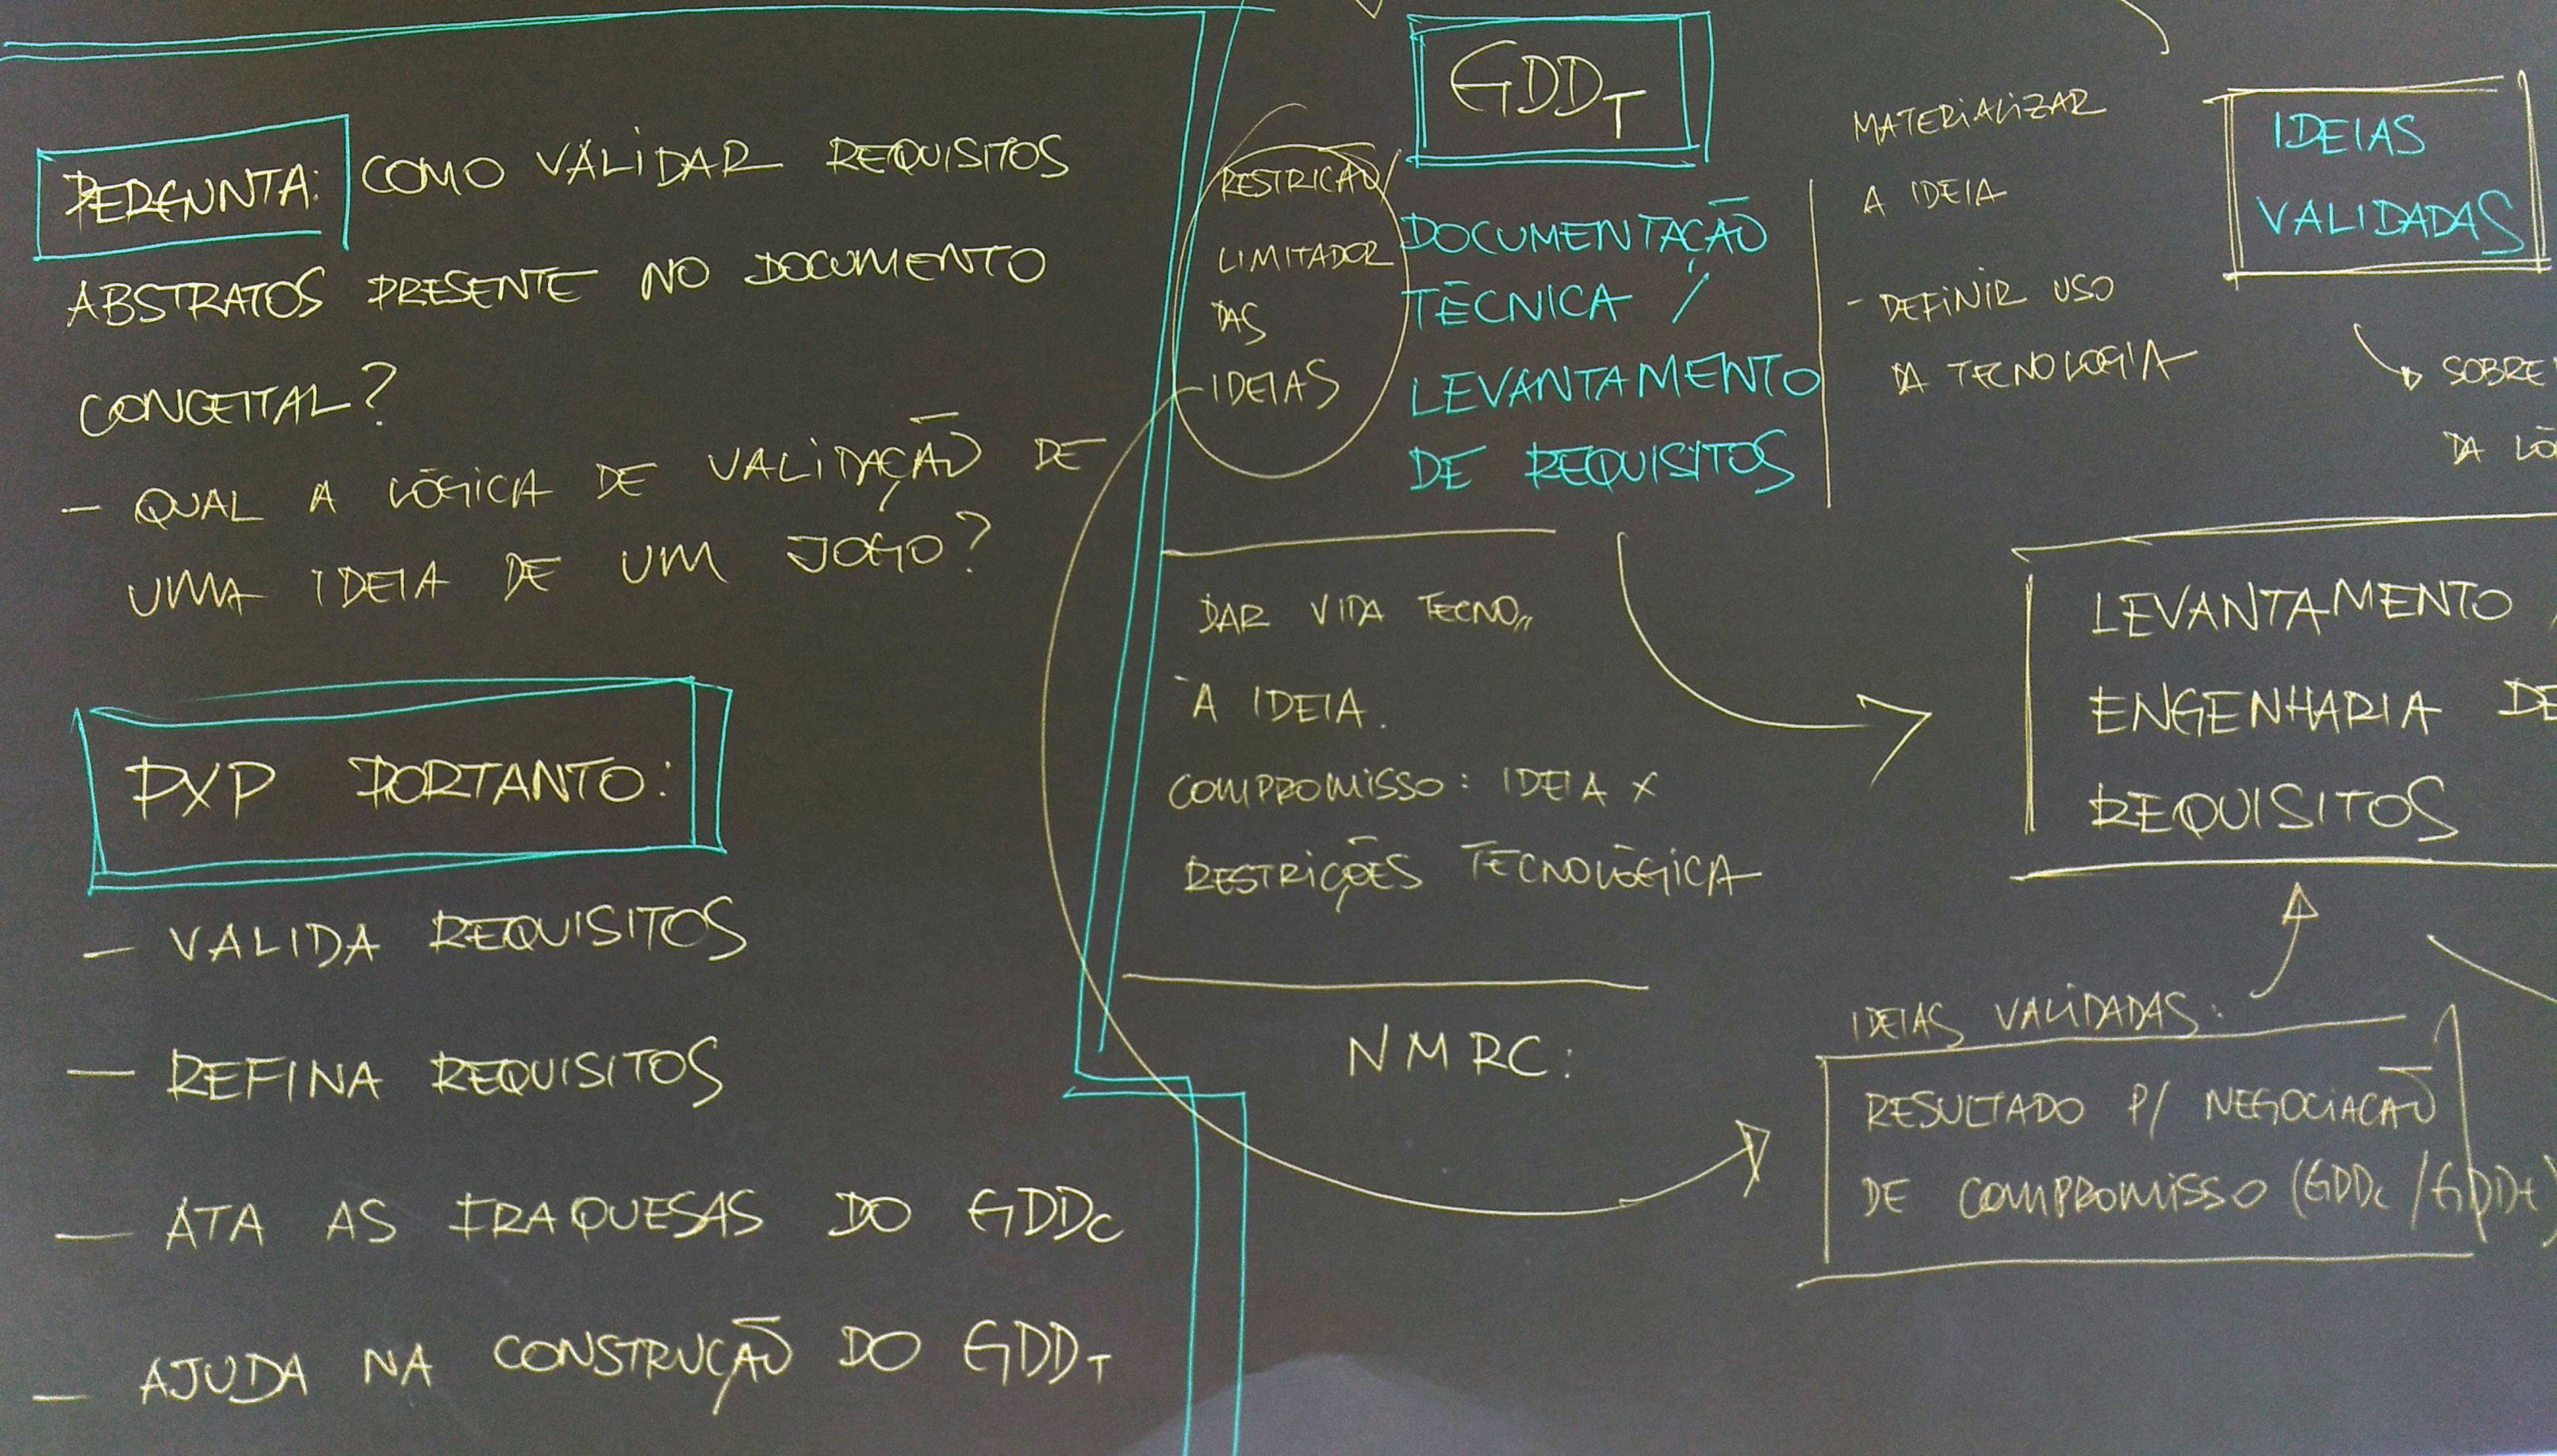 PERGUNTA: COMO VALIDAR REQUISITOS
ABSTRATOS PRESENTE NO DOCUMENTO
CONCEITAL?
- QUAL A LÓGICA DE VALIDAÇÃO DE
UMA IDEIA DE UM JOGO?
PXP PORTANTO:
- VALIDA REQUISITOS
- REFINA REQUISITOS
- ATA AS FRAQUESAS DO GDDC
- AJUDA NA CONSTRUÇÃO DO GDDT
GDDT
RESTRICÃO/
LIMITADOR
DAS
IDEIAS
DOCUMENTAÇÃO
TÉCNICA /
LEVANTAMENTO
DE REQUISITOS
MATERIALIZAR
A IDEIA
- DEFINIR USO
DA TECNOLOGIA
DAR VIDA TECNO,,
À IDEIA.
COMPROMISSO: IDEIA X
RESTRIÇÕES TECNOLÓGICA
NMRC:
IDEIAS
VALIDADAS
SOBRE
DA LÓ
LEVANTAMENTO
ENGENHARIA DE
REQUISITOS
IDEIAS VALIDADAS:
RESULTADO P/ NEGOCIACÃO
DE COMPROMISSO (GDDC/GDDt)